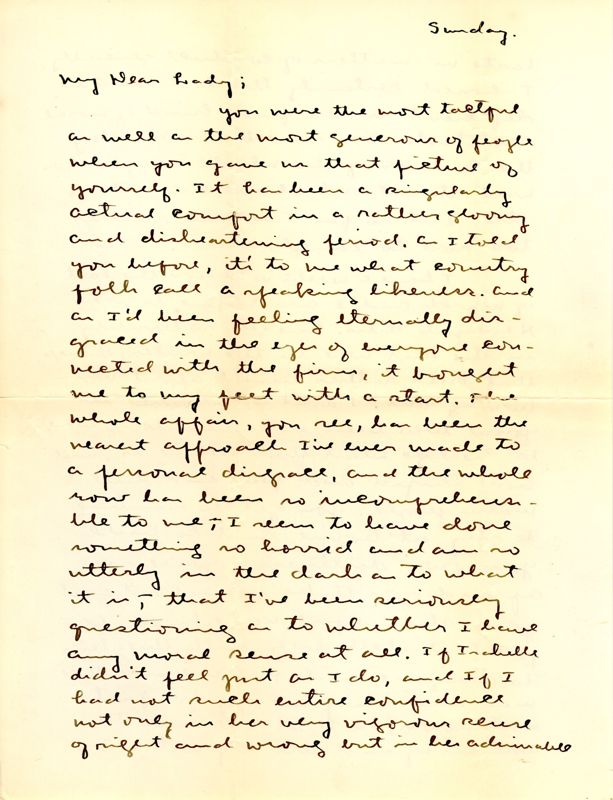 Sunday.
My Dear Lady;
You were the most tactful
as well as the most generous of people
when you gave us that picture of
yourself. It has been a singularly
actual comfort in a rather gloomy
and disheartening period. As I told
you before, it's to me what country
folk call a speaking likeness. And
as I'd been feeling eternally dis-
graced in the eyes of everyone con-
nected with the firm, it brought
me to my feet with a start. The
whole affair, you see, has been the
nearest approach I've ever made to
a personal disgrace, and the whole
row has been so incomprehensi-
ble to me, – I seem to have done
something so horrid and am so
utterly in the dark as to what
it is, – that I've been seriously
questioning as to whether I have
any moral sense at all. If Isabelle
didn't feel just as I do, and if I
had not such entire confidence
not only in her very vigorous sense
of right and wrong but in her admirable